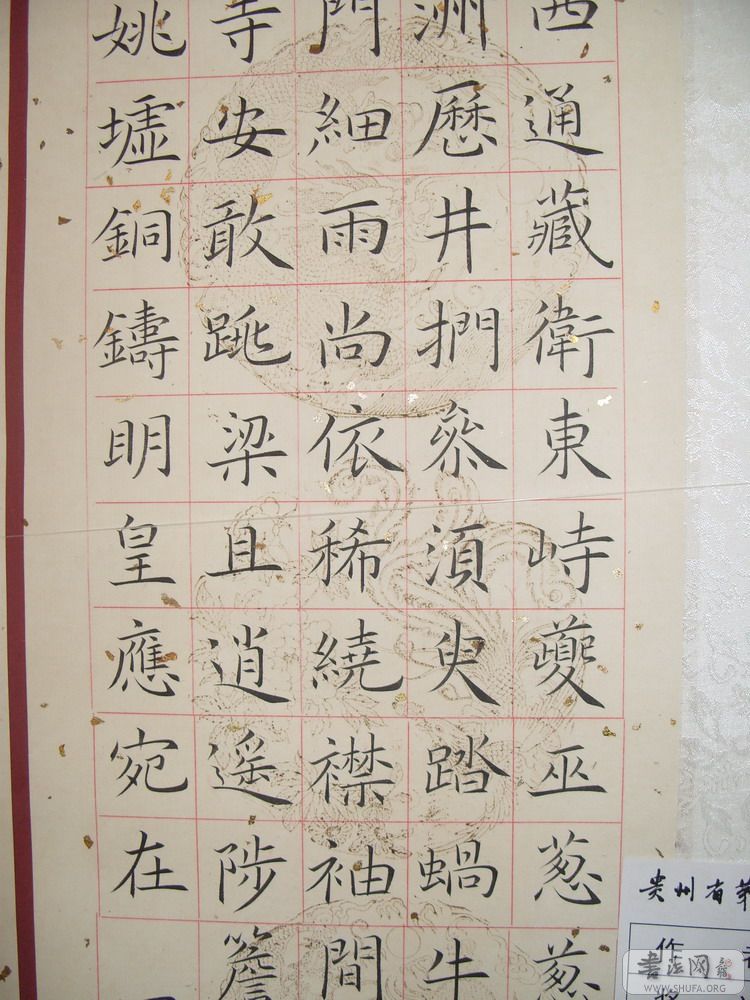 西通藏衛東峙夔巫蔥蔥
洲歷井捫參須臾踏蝸牛
門細雨尚依稀繞襟袖間
寺安敢跳梁且逍遙陟簷
姚墟銅鑄明皇應宛在
贵州省
作
書法网
WWW.SHUFA.ORG